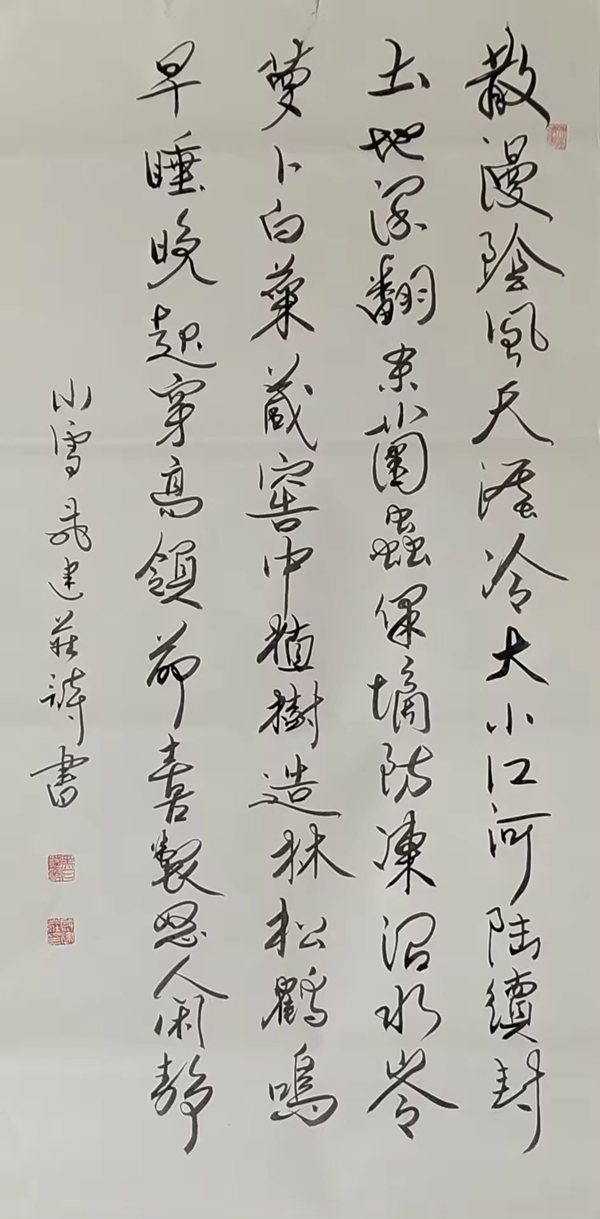 散漫陰風天冷大小江河陸續封
土地深翻蟲保墒防凍沼水
蘿卜白菜藏窖中植樹造林松鶴鳴
早睡晚起穿高領節喜製怒人閑靜
小雪 建莊詩書